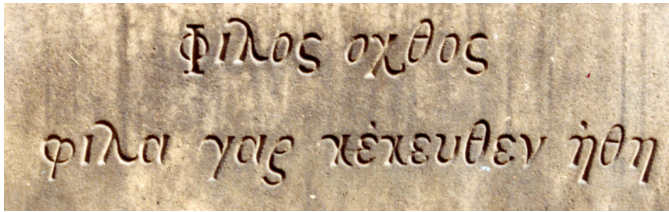 Φιλος οχθος
φιλα γαρ κἐκευθεν ἠθη